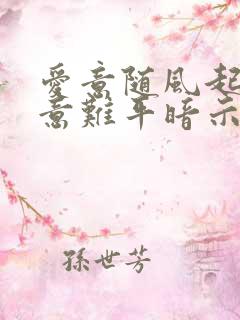 愛意随風起
意難平暗示
孫世芳